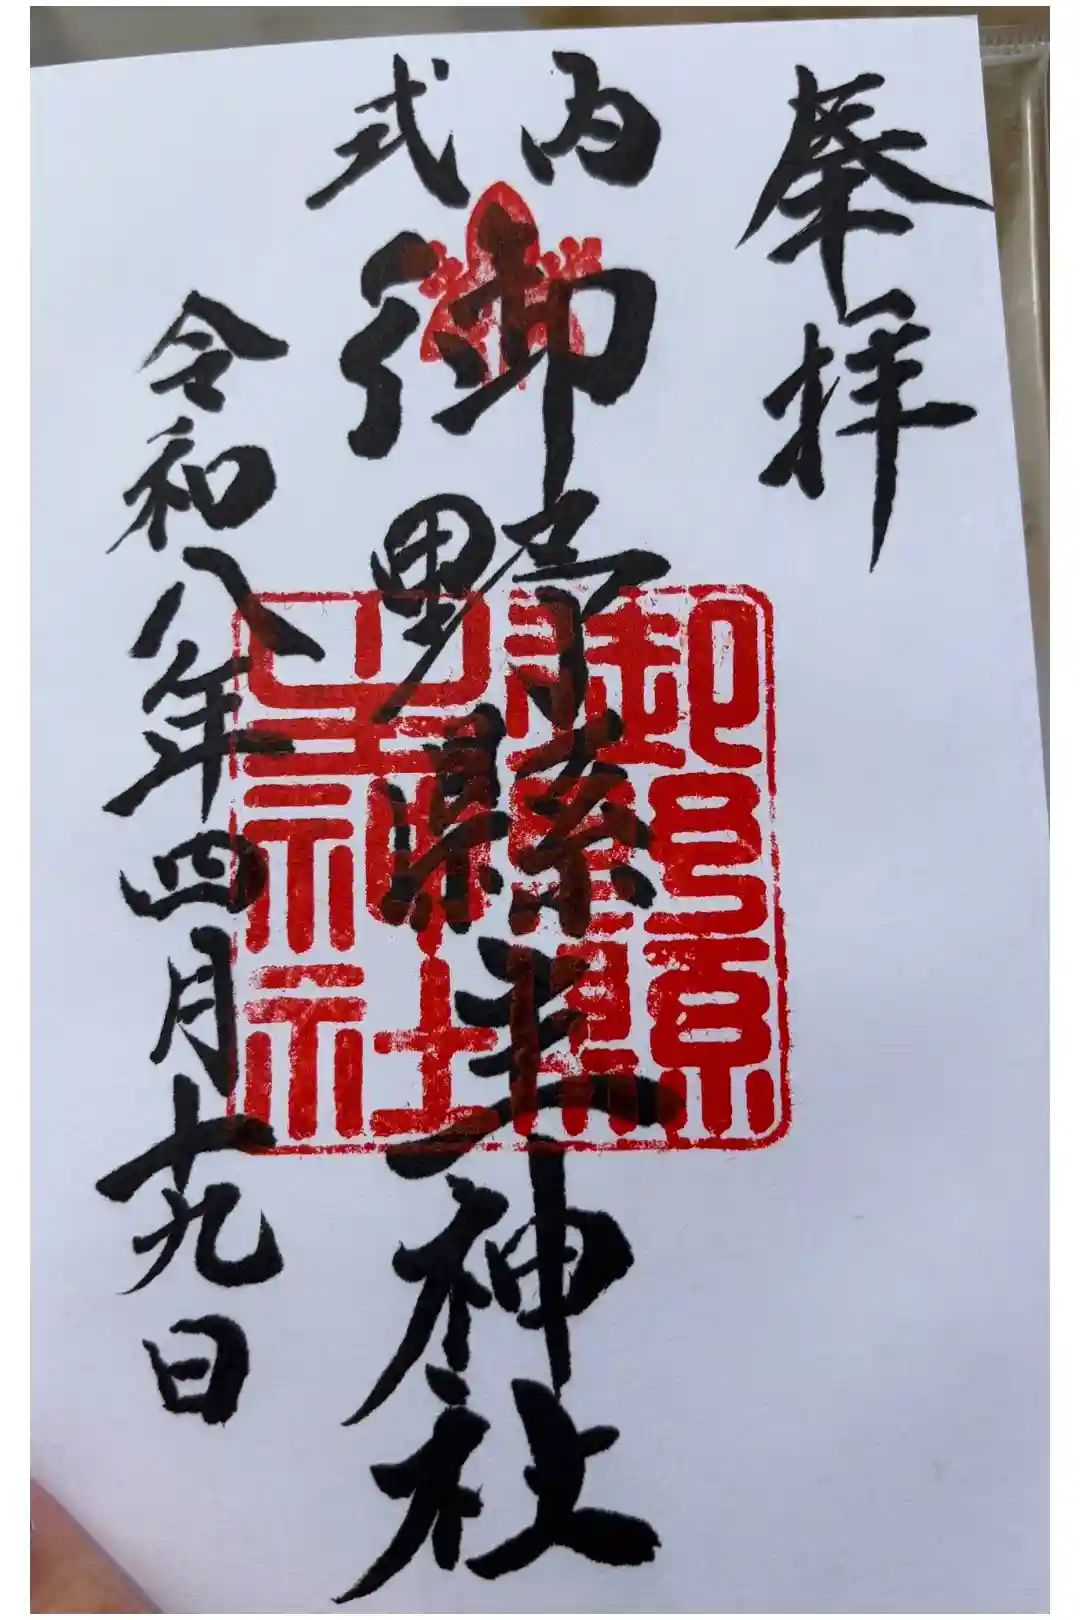 奉拝
式内
御野縣主神社
令和八年四月十九日
御野縣
主神社